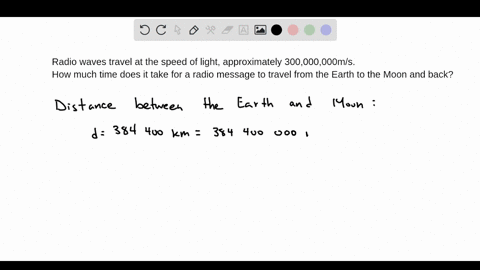 Radio waves travel at the speed of light, approximately 300,000,000m/s.
How much time does it take for a radio message to travel from the Earth to the Moon and back?
Distance between the Earth and Moon :
d = 384 400 km = 384 400 000